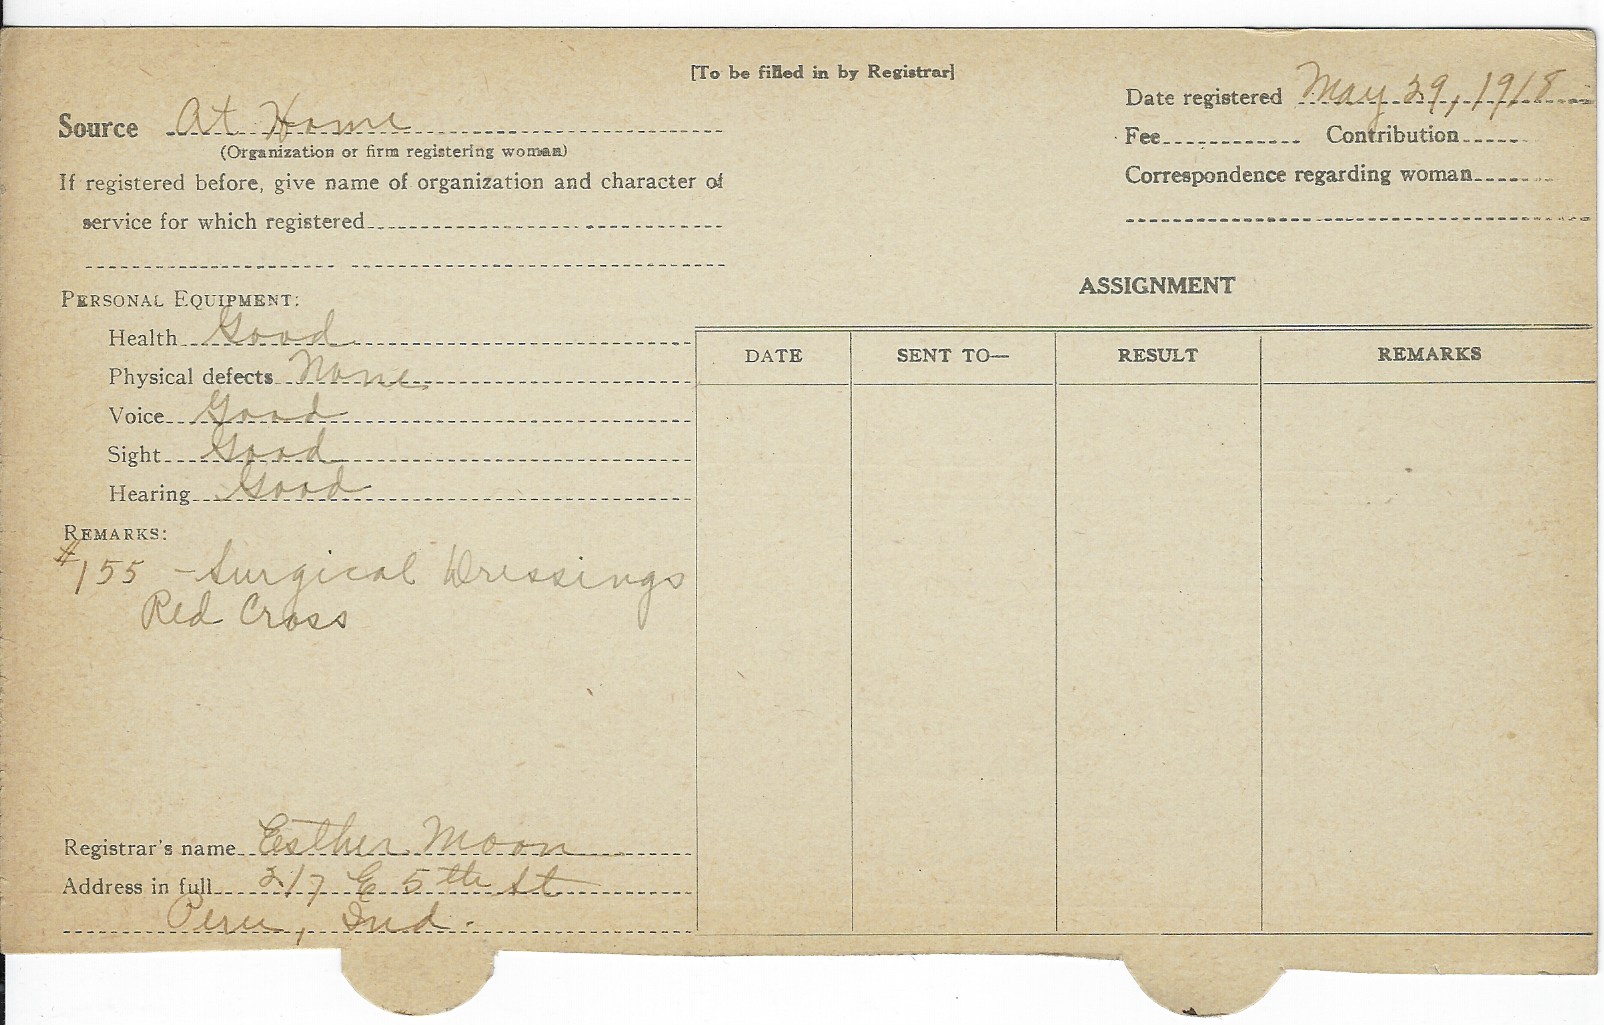 [To be filled in by Registrar]
Source At Home
(Organization or firm registering woman)
If registered before, give name of organization and character of
service for which registered
PERSONAL EQUIPMENT:
Health Good
Physical defects None
Voice Good
Sight Good
Hearing Good
REMARKS:
#155 - Surgical Dressings
Red Cross
Registrar's name Esther Moon
Address in full 217 E 5th St
Peru, Ind.
Date registered May 29, 1918
Fee Contribution
Correspondence regarding woman
ASSIGNMENT
DATE SENT TO— RESULT REMARKS